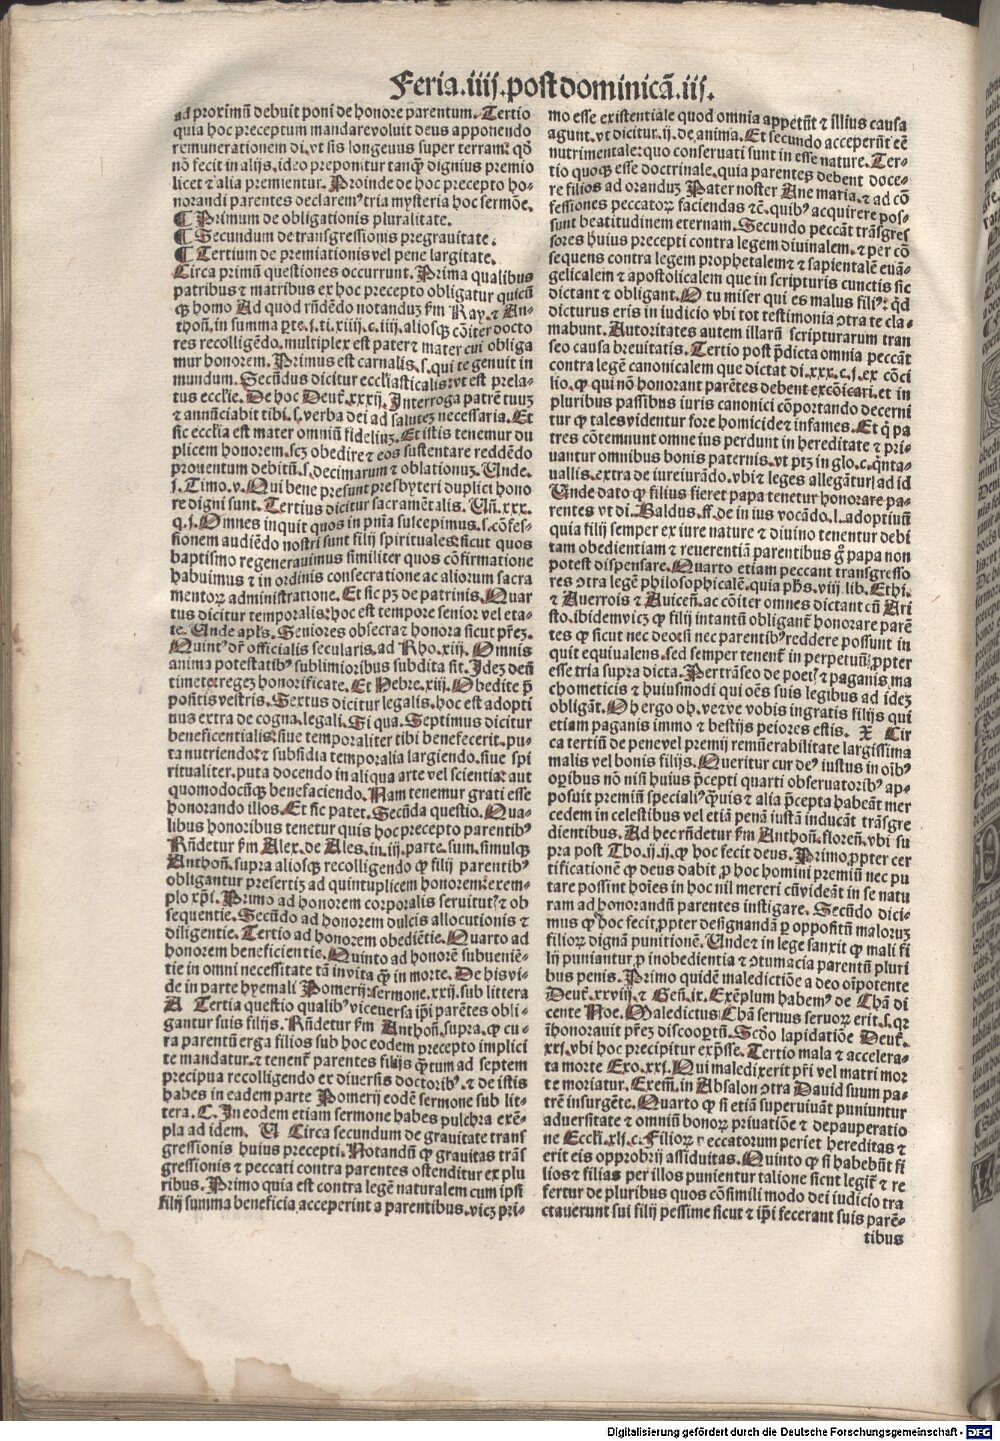 Feria.iiij.post dominicã.ij.
ad proximũ debuit poni de honore parentum. Tertio
quia hoc preceptum mandare voluit deus apponendo
remunerationem di. vt sis longeuus super terram: qđ
nõ fecit in alijs. ideo preponitur tanqᷓ dignius premio
licet ⁊ alia premientur. Proinde de hoc precepto ho-
norandi parentes declarem⁹ tria mysteria hoc sermõe.
¶ Primum de obligationis pluralitate.
¶ Secundum de transgressionis pregrauitate.
¶ Tertium de premiationis vel pene largitate.
Circa primũ questiones occurrunt. Prima qualibus
patribus ⁊ matribus ex hoc precepto obligatur quicũ
qȝ homo Ad quod rñdẽdo notanduȝ ẜm Ray. ⁊ An-
thoñ. in summa ꝑte.j.ti.xiiij.c.iij. aliosqȝ cõiter docto
res recolligẽdo. multiplex est pater ⁊ mater cui obliga
mur honorem. Primus est carnalis.s. qui te genuit in
mundum. Secũdus dicitur ecclĩasticalis: vt est prela-
tus ecclĩe. De hoc Deut̃.xxxij. Interroga patrẽ tuuȝ
⁊ annũciabit tibi.s. verba dei ad saluteȝ necessaria. Et
sic ecclĩa est mater omniũ fideliuȝ. Et istis tenemur du
plicem honorem. scȝ obedire ⁊ eos sustentare reddẽdo
prouentum debitũ.s. decimarum ⁊ oblationuȝ. Unde.
j. Timo.v. Qui bene presunt presbyteri duplici hono
re digni sunt. Tertius dicitur sacramẽtalis. Uñ.xxx.
q.j. Omnes inquit quos in pnĩa suscepimus.s. cõfes-
sionem audiẽdo nostri sunt filij spirituales: sicut quos
baptismo regenerauimus similiter quos cõfirmatione
habuimus ⁊ in ordinis consecratione ac aliorum sacra
mentoꝝ administratione. Et sic pȝ de patrinis. Quar
tus dicitur temporalis: hoc est tempore senior vel eta-
te. Unde apl̃s. Seniores obsecra ⁊ honora sicut pr̃eȝ.
Quint⁹ dr̃ officialis secularis. ad Rho.xiij. Omnis
anima potestatib⁹ sublimioribus subdita sit. Ideȝ deũ
timete: regeȝ honorificate. Et Hebre.xiij. Obedite p̃
positis vestris. Sextus dicitur legalis. hoc est adopti
nus extra de cogna. legali. Si qua. Septimus dicitur
beneficentialis: siue temporaliter tibi benefecerit. pu-
ta nutriendo: ⁊ subsidia temporalia largiendo. siue spi
ritualiter. puta docendo in aliqua arte vel scientia: aut
quomodocũqȝ benefaciendo. Nam tenemur grati esse
honorando illos. Et sic patet. Secũda questio. Qua-
libus honoribus tenetur quis hoc precepto parentib⁹
Rñdetur ẜm Alex. de Ales. in.iij. parte. sum. simulqȝ
Anthoñ. supra aliosqȝ recolligendo ꝙ filij parentib⁹
obligantur presertiȝ ad quintuplicem honorem: exem-
plo xp̃i. Primo ad honorem corporalis seruitut⁊ ob
sequentie. Secũdo ad honorem dulcis allocutionis ⁊
diligentie. Tertio ad honorem obediẽtie. Quarto ad
honorem beneficientie. Quinto ad honorẽ subueniẽ-
tie in omni necessitate tã in vita qᷓ in morte. De his vi-
de in parte hyemali Pomerij: sermone.xxij. sub littera
A Tertia questio qualib⁹ viceuersa ip̃i parẽtes obli-
gantur suis filijs. Rñdetur ẜm Anthoñ. supra. ꝙ cu-
ra parentũ erga filios sub hoc eodem precepto implici
te mandatur. ⁊ tenent̃ parentes filijs qᷓtum ad septem
precipua recolligendo ex diuersis doctorib⁹. ⁊ de istis
habes in eadem parte Pomerij eodẽ sermone sub lit-
tera. C. In eodem etiam sermone habes pulchra exẽ-
pla ad idem. U Circa secundum de grauitate trans
gressionis huius precepti. Notandũ ꝙ grauitas trãs
gressionis ⁊ peccati contra parentes ostenditur ex plu
ribus. Primo quia est contra legẽ naturalem cum ipsi
filij summa beneficia acceperint a parentibus. vicȝ pri-
mo esse existentiale quod omnia appetũt ⁊ illius causa
agunt. vt dicitur.ij. de anima. Et secundo acceperũt eẽ
nutrimentale: quo conseruati sunt in esse nature. Ter-
tio quoqȝ esse doctrinale. quia parentes debent doce-
re filios ad oranduȝ Pater noster Aue maria. ⁊ ad cõ
fessiones peccatoꝝ faciendas ⁊c̃. quib⁹ acquirere pos-
sunt beatitudinem eternam. Secundo peccãt trãsgres
sores huius precepti contra legem diuinalem. ⁊ per cõ
sequens contra legem prophetalem ⁊ sapientalẽ euã-
gelicalem ⁊ apostolicalem que in scripturis cunctis sic
dictant ⁊ obligant. O tu miser qui es malus fili⁹: qđ
dicturus eris in iudicio vbi tot testimonia ɔtra te cla-
mabunt. Autoritates autem illarũ scripturarum tran
seo causa breuitatis. Tertio post p̃dicta omnia peccãt
contra legẽ canonicalem que dictat di.xxx.c.j. ex cõci
lio. ꝙ qui nõ honorant parẽtes debent excõicari. et in
pluribus passibus iuris canonici cõportando decerni
tur ꝙ tales videntur fore homicide ⁊ infames. Et q̃ pa
tres cõtemnunt omne ius perdunt in hereditate ⁊ pri-
uantur omnibus bonis paternis. vt ptȝ in glo.c. qñta-
uallis. extra de iureiurãdo. vbi ⁊ leges allegãtur ad id
Unde dato ꝙ filius fieret papa tenetur honorare pa-
rentes vt di. Baldus.ff. de in ius vocãdo.l. adoptiuũ
quia filij semper ex iure nature ⁊ diuino tenentur debi
tam obedientiam ⁊ reuerentiã parentibus gͦ papa non
potest dispensare. Quarto etiam peccant transgresso
res ɔtra legẽ philosophicalẽ. quia ph̃s.viij.lib. Ethi.
⁊ Auerrois ⁊ Auiceñ. ac cõiter omnes dictant cũ Ari
sto. ibidem vicȝ ꝙ filij intantũ obligant̃ honorare parẽ
tes ꝙ sicut nec deo: si nec parentib⁹ reddere possunt in
quit equiualens. sed semper tenent̃ in perpetuũ ꝓpter
esse tria supra dicta. Pertrãseo de poet⁊ ⁊ paganis ma
chometicis ⁊ huiusmodi qui oẽs suis legibus ad ideȝ
obligãt. Oh ergo oh. ve: ve vobis ingratis filijs qui
etiam paganis immo ⁊ bestijs peiores estis. X Cir
ca tertiũ de pene vel premij remũerabilitate largissima
malis vel bonis filijs. Queritur cur de⁹ iustus in oĩb⁹
oꝑibus nõ nisi huius p̃cepti quarti obseruatorib⁹ ap-
posuit premiũ speciali⁹ qᷓuis ⁊ alia p̃cepta habeãt mer
cedem in celestibus vel etiã penã iustã inducãt trãsgre
dientibus. Ad hec rñdetur ẜm Anthoñ. floreñ. vbi su
pra post Tho.ij.ij. ꝙ hoc fecit deus. Primo ꝓpter cer
tificationẽ ꝙ deus dabit ꝓ hoc homini premiũ nec pu
tare possint hoĩes in hoc nil mereri cũ videãt in se natu
ram ad honorandũ parentes instigare. Secũdo dici-
mus ꝙ hoc fecit ꝓpter designandã ꝑ oppositũ maloruȝ
filioꝝ dignã punitionẽ. Unde ⁊ in lege sanxit ꝙ mali fi
lij puniantur ꝓ inobedientia ⁊ ɔtumacia parentũ pluri
bus penis. Primo quidẽ maledictiõe a deo oĩpotente
Deut̃.xxviij. ⁊ Geñ.ix. Exẽplum habem⁹ de Chã di
cente Noe. Maledictus Chã seruus seruoꝝ erit.s. qꝛ
ĩhonorauit pr̃eȝ discoopertũ. Scd̃o lapidatiõe Deut̃.
xxj. vbi hoc precipitur exp̃sse. Tertio mala ⁊ accelera-
ta morte Exo.xxj. Qui maledixerit pr̃i vel matri mor
te moriatur. Exem̃. in Absalon ɔtra Dauid suum pa-
trẽ insurgẽte. Quarto ꝙ si etiã superuiuãt puniuntur
aduersitate ⁊ omniũ bonoꝝ priuatiõe ⁊ depauperatio
ne Eccl̃i.xlj.c. Filioꝝ peccatorum periet hereditas ⁊
erit eis opprobrij assiduitas. Quinto ꝙ si habebũt fi
lios ⁊ filias per illos punientur talione sicut legit̃ ⁊ re
fertur de pluribus quos cõsimili modo dei iudicio tra
ctauerunt sui filij pessime sicut ⁊ ip̃i fecerant suis parẽ-
tibus
Digitalisierung gefördert durch die Deutsche Forschungsgemeinschaft - DFG